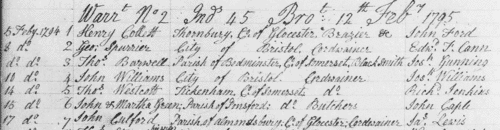 Warr.t No 2 Ind.s 45 Bro.t 12th Feb.y 1795
5 Feb.y 1794 1 Henry Collett Thornbury, C.o of Glocester Brazier &c John Ford
8 do 2 Geo. Spurrier City of Bristol Cordwainer Edw.d J. Cann
do do 3 Tho.s Barwell Parish of Bedminster, C.o of Somerset, Black Smith Jos. Gunning
10 do 4 John Williams City of Bristol Cordwainer Jos. Williams
14 do 5 Tho.s Westcott Tickenham, C.o of Somerset, do Rich.d Jenkins
15 do 6 John & Martha Green; Parish of do Butchers John Caple
17 do 7 John Parish of Almondsbury, C.o of Glocester; Cordwainer Ja.s Lewis